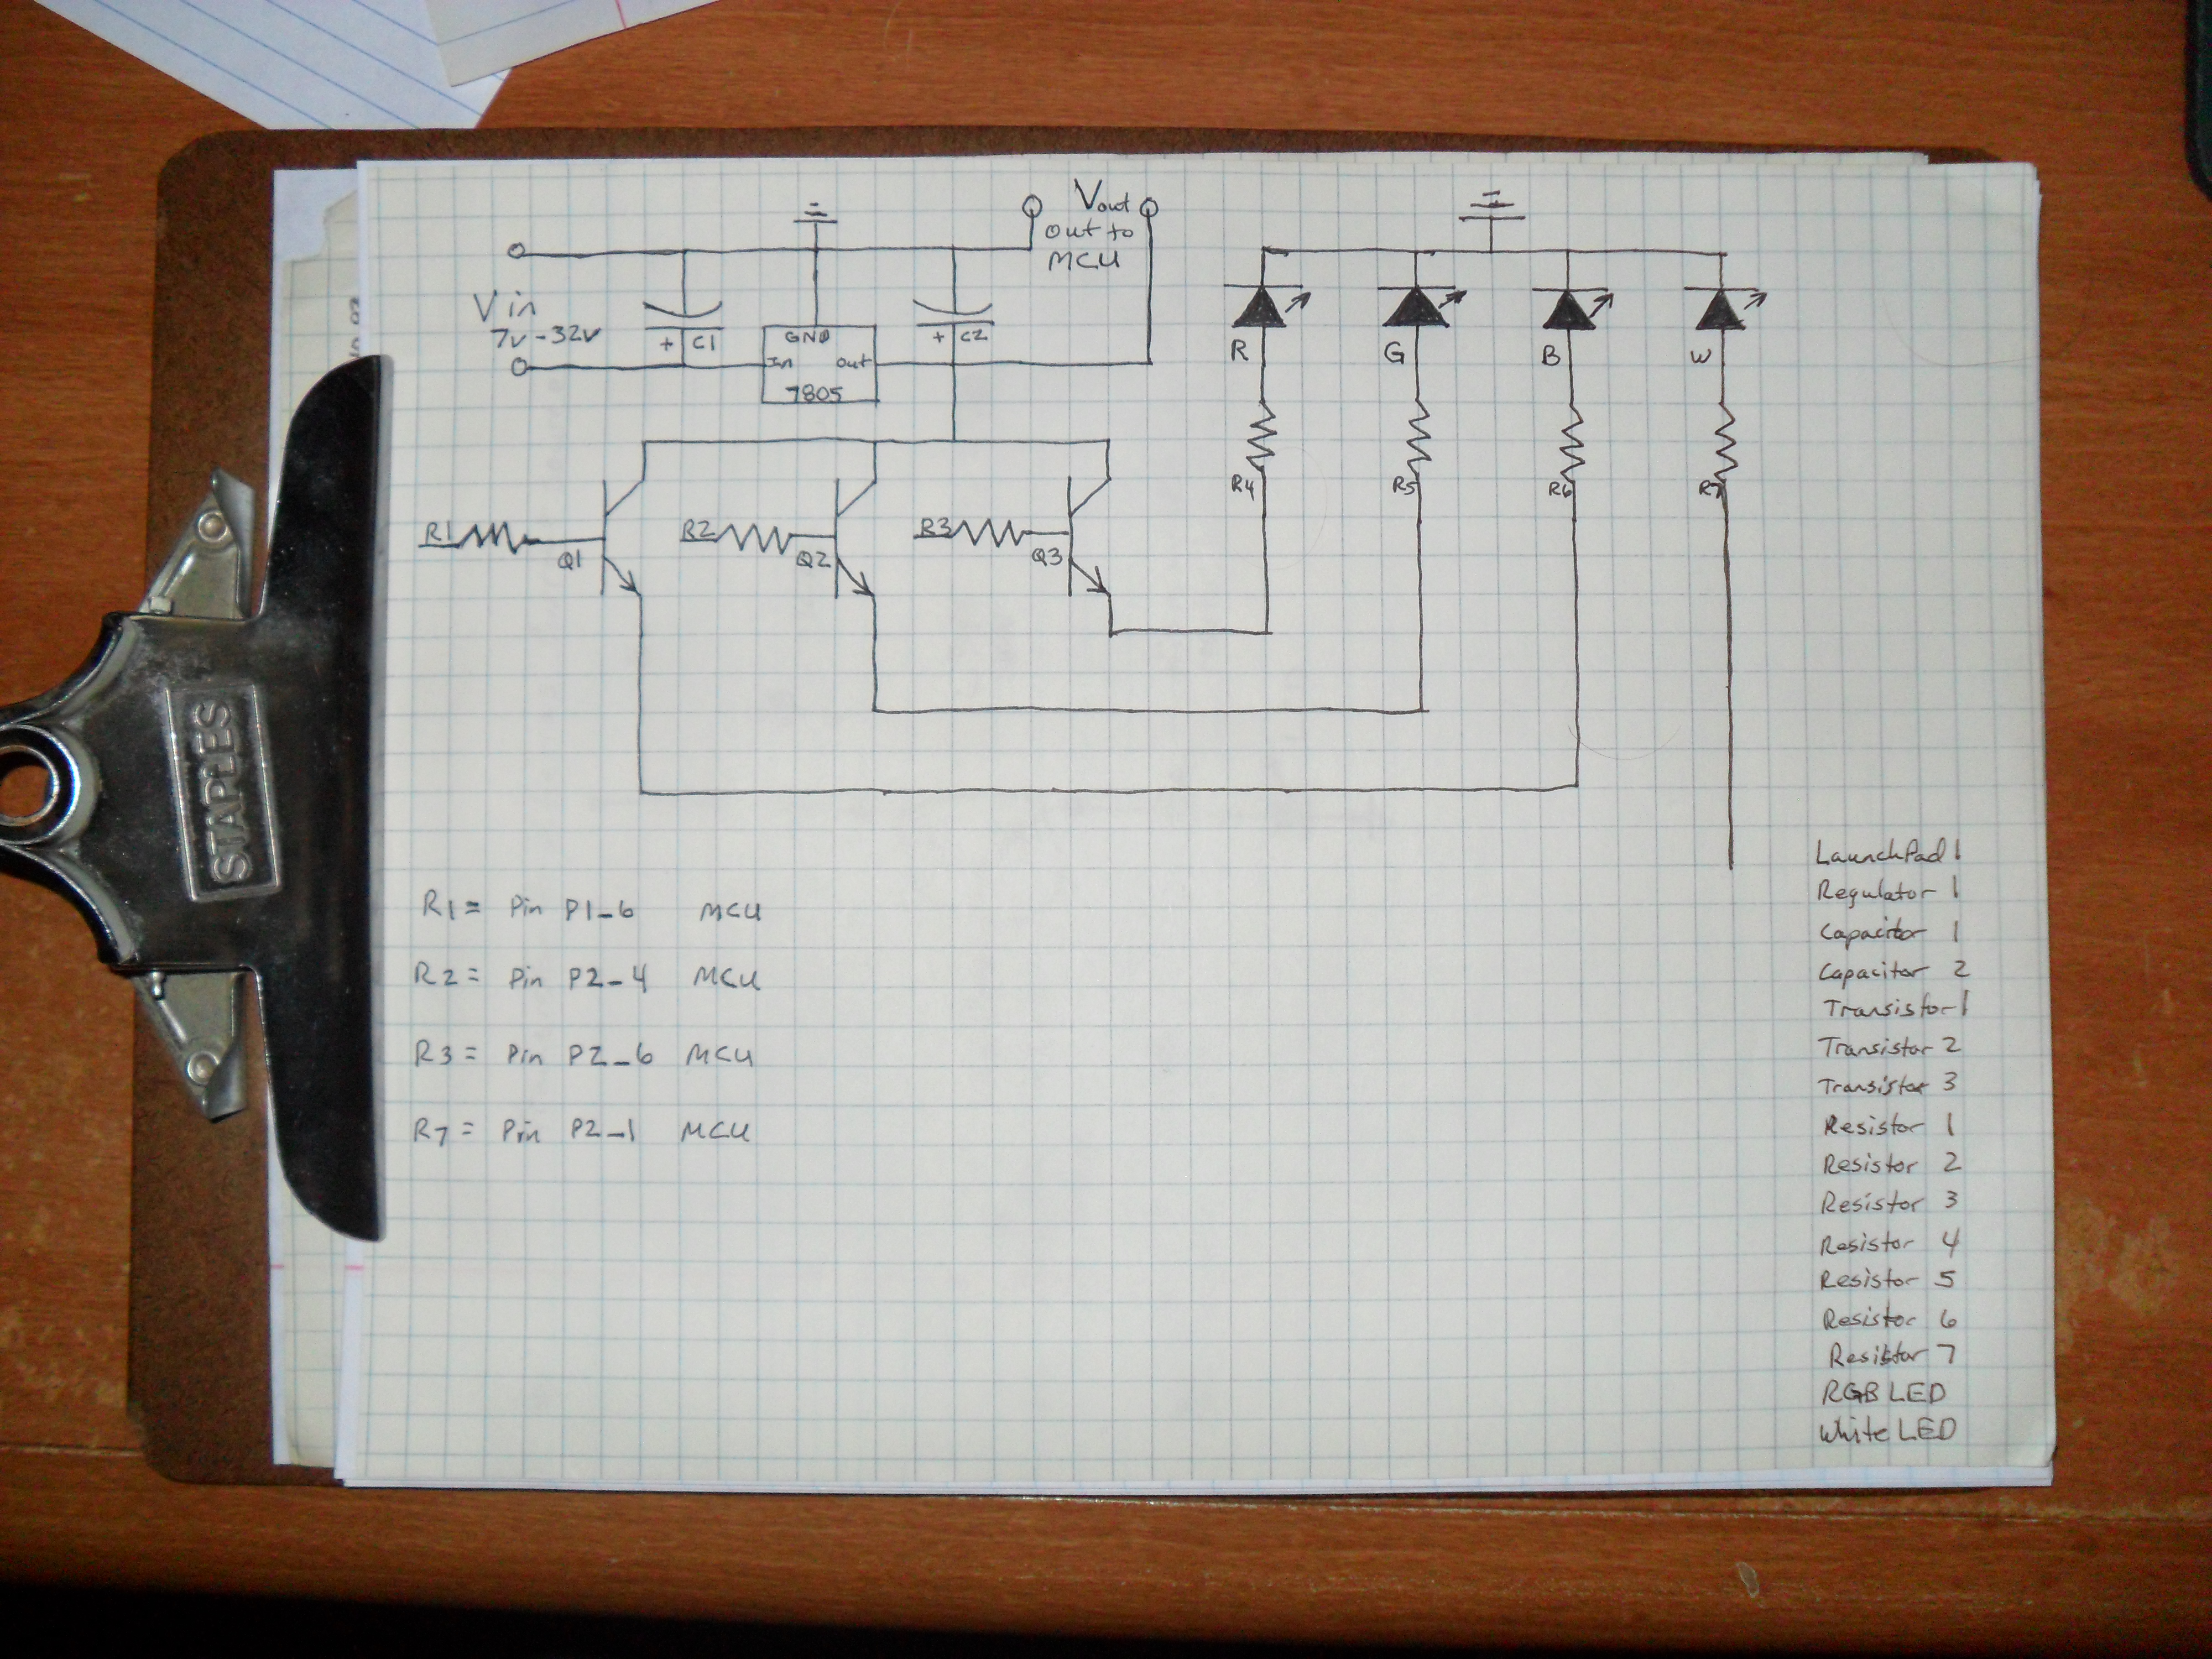 Vout
out to
MCU
Vin
7v-32v
+ C1
GND
In
Out
7805
+ C2
R
G
B
W
R4
R5
R6
R7
R1
Q1
R2
Q2
R3
Q3
STAPLES
R1= Pin P1_6 MCU
R2= Pin P2_4 MCU
R3= Pin P2_6 MCU
R7= Pin P2_1 MCU
LaunchPad 1
Regulator 1
Capacitor 1
Capacitor 2
Transistor 1
Transistor 2
Transistor 3
Resistor 1
Resistor 2
Resistor 3
Resistor 4
Resistor 5
Resistor 6
Resistor 7
RGB LED
White LED